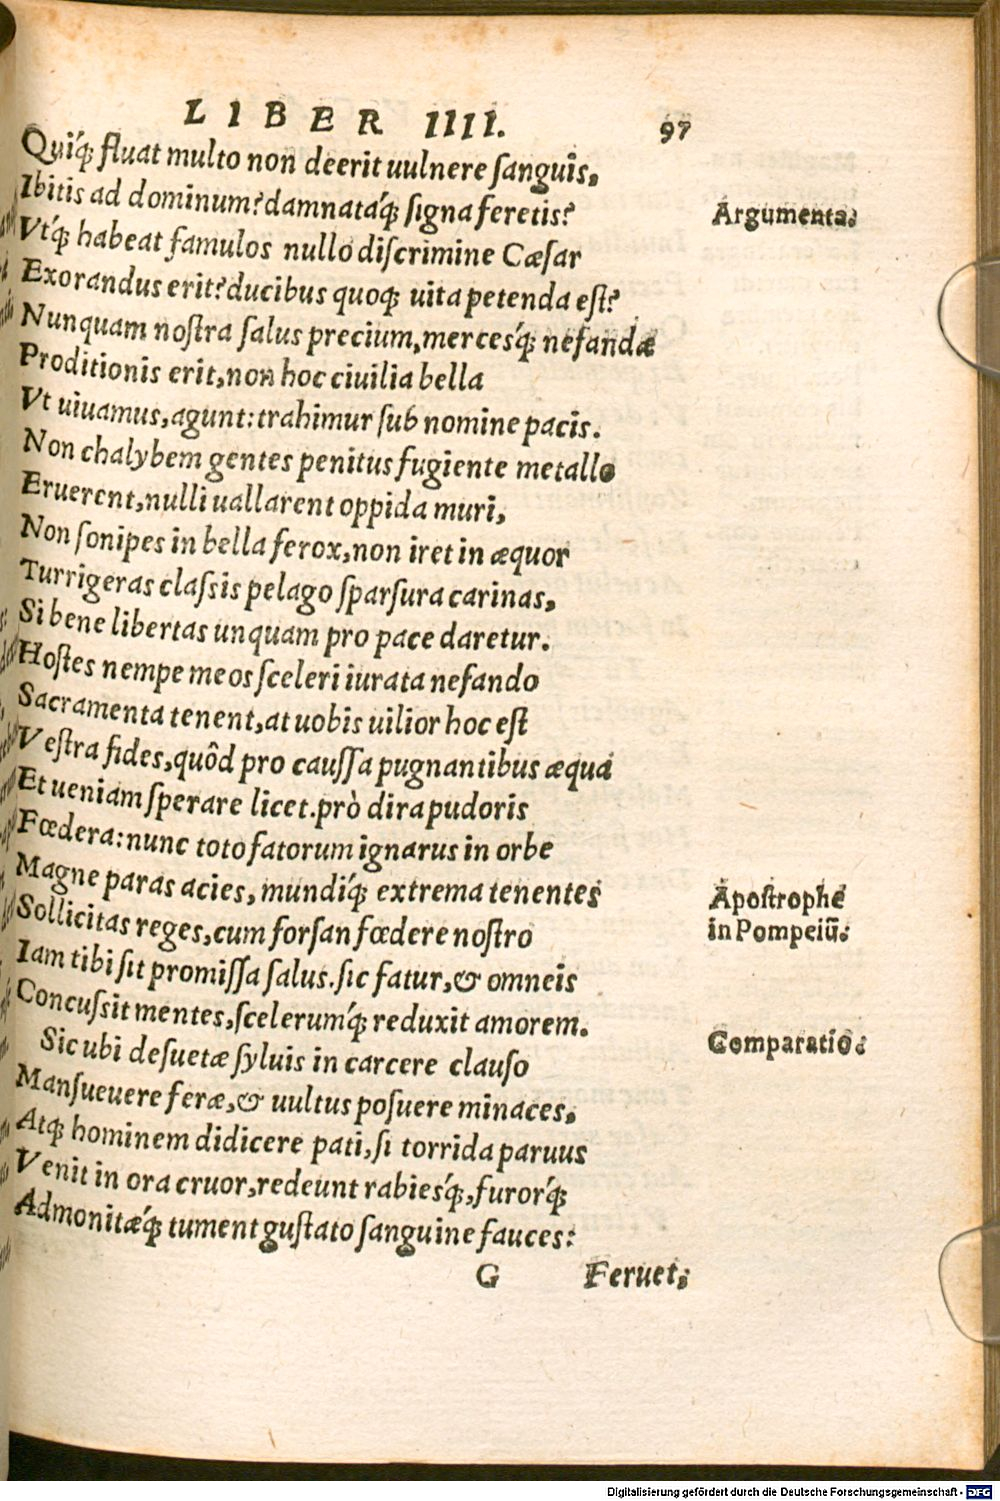 LIBER IIII. 97
Quiq́; fluat multo non deerit uulnere ſanguis,
Ibitis ad dominum? damnatáq́; ſigna feretis?
Argumenta.
Vtq́; habeat famulos nullo diſcrimine Cæſar
Exorandus erit? ducibus quoq; uita petenda eſt?
Nunquam noſtra ſalus precium, mercesq́; nefandæ
Proditionis erit, non hoc ciuilia bella
Vt uiuamus, agunt: trahimur ſub nomine pacis.
Non chalybem gentes penitus fugiente metallo
Eruerent, nulli uallarent oppida muri,
Non ſonipes in bella ferox, non iret in æquor
Turrigeras claſsis pelago ſparſura carinas,
Si bene libertas unquam pro pace daretur.
Hoſtes nempe meos ſceleri iurata nefando
Sacramenta tenent, at uobis uilior hoc eſt
Veſtra fides, quôd pro cauſſa pugnantibus æqua
Et ueniam ſperare licet. prò dira pudoris
Fœdera: nunc toto fatorum ignarus in orbe
Magne paras acies, mundiq́; extrema tenentes
Apoſtrophe
Sollicitas reges, cum forſan fœdere noſtro
in Pompeiũ.
Iam tibi ſit promiſſa ſalus. ſic fatur, & omneis
Concuſsit mentes, ſcelerumq́; reduxit amorem.
Sic ubi deſuetæ ſyluis in carcere clauſo
Comparatio.
Manſueuere feræ, & uultus poſuere minaces,
Atq; hominem didicere pati, ſi torrida paruus
Venit in ora cruor, redeunt rabiesq́;, furorq́;
Admonitæq́; tument guſtato ſanguine fauces:
G Feruet,
Digitalisierung gefördert durch die Deutsche Forschungsgemeinschaft - DFG